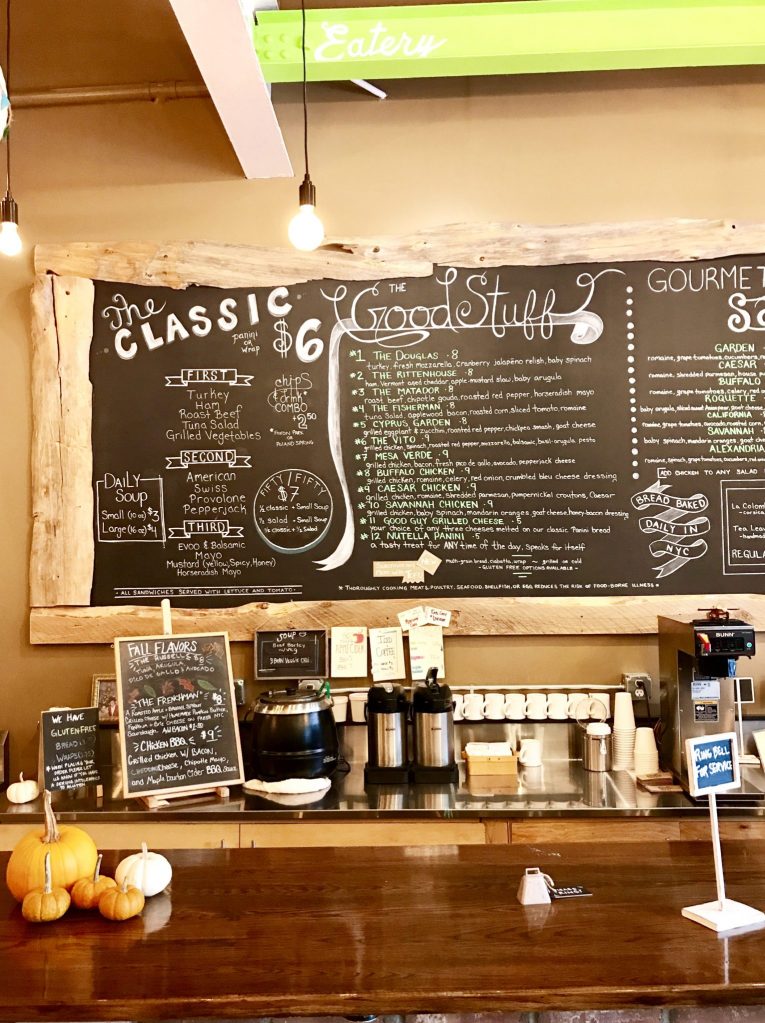 Eatery
The
CLASSIC
panini
or
wrap
$6
FIRST
Turkey
Ham
Roast Beef
Tuna Salad
Grilled Vegetables
SECOND
American
Swiss
Provolone
Pepperjack
THIRD
EVOO & Balsamic
Mayo
Mustard (yellow, Spicy, Honey)
Horseradish Mayo
- ALL SANDWICHES SERVED WITH LETTUCE AND TOMATO -
chips
& drink*
COMBO
$2.50
POLAND SPRING
DAILY
Soup
Small (10 oz) $3
Large (16 oz) $4
FIFTY/FIFTY
$7
½ classic + Small Soup
½ salad + Small Soup
½ classic + ½ Salad
THE
Good Stuff
#1 THE DOUGLAS · 8
turkey, fresh mozzarella, cranberry jalapeño relish, baby spinach
#2 THE RITTENHOUSE · 8
ham, Vermont aged cheddar, apple-mustard slaw, baby arugula
#3 THE MATADOR · 8
roast beef, chipotle gouda, roasted red pepper, horseradish mayo
#4 THE FISHERMAN · 8
tuna Salad, applewood bacon, roasted corn, sliced tomato, romaine
#5 CYPRUS GARDEN · 8
grilled eggplant & zucchini, roasted red pepper, chickpea smash, goat cheese
#6 THE VITO · 9
grilled chicken, spinach, roasted red pepper, mozzarella, balsamic, basil-arugula pesto
#7 MESA VERDE · 9
grilled chicken, bacon, fresh pico de gallo, avocado, pepperjack cheese
#8 BUFFALO CHICKEN · 9
grilled chicken, romaine, celery, red onion, crumbled bleu cheese dressing
#9 CAESAR CHICKEN · 9
grilled chicken, romaine, Shredded parmesan, pumpernickel croutons, Caesar
#10 SAVANNAH CHICKEN · 9
grilled chicken, baby Spinach, mandarin oranges, goat cheese, honey-bacon dressing
#11 GOOD GUY GRILLED CHEESE · 5
your choice of any three cheeses melted on our classic Panini bread
#12 NUTELLA PANINI · 5
a tasty treat for ANY time of the day, Speaks for itself
multi-grain bread, ciabatta, wrap ~ grilled or cold
- GLUTEN FREE OPTIONS AVAILABLE -
* THOROUGHLY COOKING MEATS, POULTRY, SEAFOOD, SHELLFISH, OR EGG REDUCES THE RISK OF FOOD-BORNE ILLNESS *
GOURMET
GARDEN
romaine, grape tomatoes, cucumbers
CAESAR
romaine, shredded parmesan, house
BUFFALO
romaine, grape tomatoes, celery, red
ROQUETTE
CALIFORNIA
SAVANNAH
baby spinach, mandarin oranges, goat
ALEXANDRIA
ADD CHICKEN TO ANY SALAD
BREAD BAKED
DAILY IN
NYC
La Colom
Tea Leave
REGULA
FALL FLAVORS
THE RUSSELL $8
TUNA, ARUGULA
PICO DE GALLO & AVOCADO
"THE FRENCHMAN" $8
CHICKEN BBQ $9
Grilled CHICKEN W/ BACON,
Cheddar Cheese, Chipotle Mayo,
and Maple bourbon Cider BBQ Sauce
SOUP
Beef Barley
w/ Veg
3 Bean Veggie Chili
APPLE CIDER
ICED
COFFEE
WE HAVE
GLUTEN-FREE
BREAD &
WRAPS
BUNN
RING BELL
FOR SERVICE